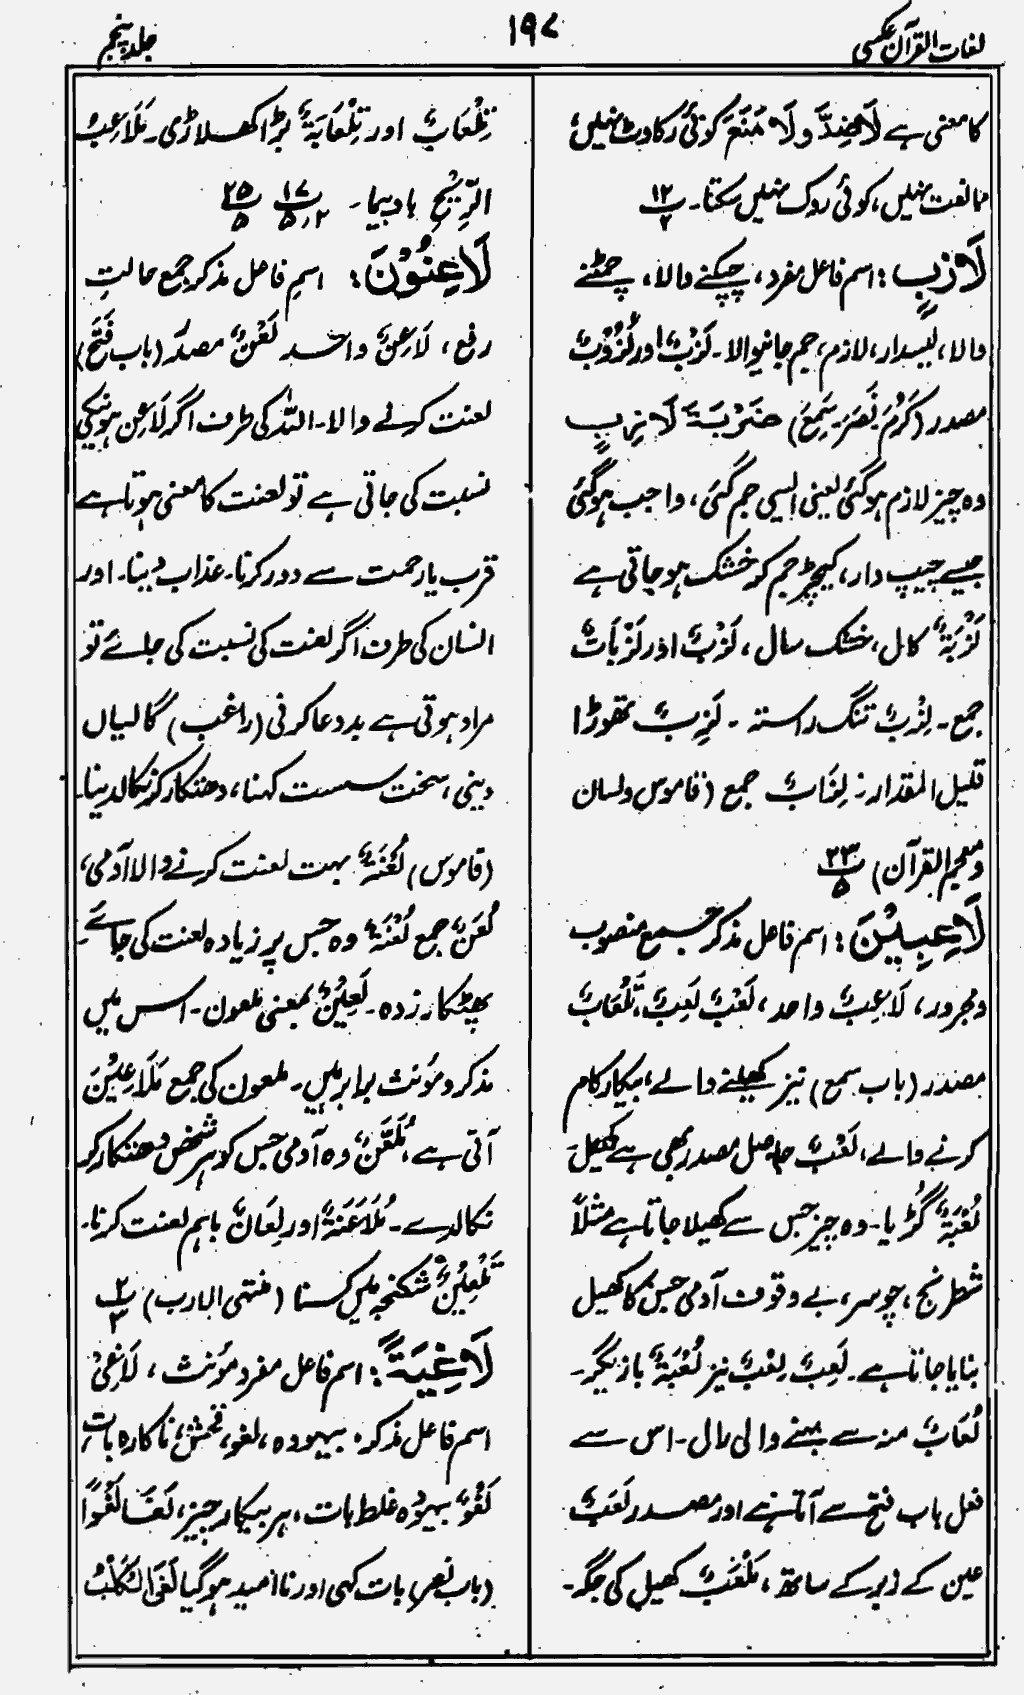 لغات القرآن عکسی
۱۹۷
جلد پنجم
کا معنی ہے لَا ضِدَّ و لَا مَنَعَ کوئی رکاوٹ نہیں،
ممانعت نہیں، کوئی روک نہیں سکتا۔ ۱۲
لَازِبٍ: اسم فاعل مفرد، چپکنے والا، چمٹنے
والا، لیسدار، لازم، جم جانیوالا۔ لَزْبٌ اور لُزُوْبٌ
مصدر (کَرُمَ نَصَرَ۔ سَمِعَ) ضَرْبَۃَ لَازِبٍ
وہ چیز لازم ہوگئی یعنی ایسی جم گئی، واجب ہوگئی
جیسے چیپ دار، کیچڑ جم کر خشک ہو جاتی ہے
لَزْبَۃٌ کال، خشک سال، لَزْبٌ اور لَزْبَاتٌ
جمع۔ لِزْبٌ تنگ راستہ۔ لَزِبٌ تھوڑا
قلیل المقدار: لِزَابٌ جمع (قاموس ولسان
و معجم القرآن) ۲۳ ۵
لَاعِبِیْنَ: اسم فاعل مذکر جمع منصوب
و مجرور، لَاعِبٌ واحد، لَعْبٌ لَعِبٌ، تَلْعَابٌ
مصدر (باب سمع) نیز کھیلنے والے، بیکار کام
کرنے والے، لَعْبٌ حاصل مصدر بھی ہے کھیل
لُعْبَۃٌ گُڑیا۔ وہ چیز جس سے کھیلا جاتا ہے مثلاً
شطرنج، چوسر، بے وقوف آدمی جس کا کھیل
بنایا جاتا ہے۔ لَعِبٌ لِعْبٌ نیز لُعْبَۃٌ بازیگر۔
لُعَابٌ منہ سے بہنے والی رال۔ اس سے
فعل باب فتح سے آتا ہے اور مصدر لَعَبٌ
عین کے زبر کے ساتھ، مَلْعَبٌ کھیل کی جگہ۔
تِلْعَابٌ اور تِلْعَابَۃٌ بڑا کھلاڑی۔ مَلَاعِبُ
الرِّیْحِ بادپیما۔ ۱۷ ۵،۲ ۲۵ ۵
لَاعِنُوْنَ: اسمِ فاعل مذکر جمع حالتِ
رفع، لَاعِنٌ واحد لَعْنٌ مصدر (باب فَتَحَ)
لعنت کرنے والا۔ اللہ کی طرف اگر لَاعِن ہونیکی
نسبت کی جاتی ہے تو لعنت کا معنی ہوتا ہے
قرب یا رحمت سے دور کرنا۔ عذاب دینا۔ اور
انسان کی طرف اگر لعنت کی نسبت کی جائے تو
مراد ہوتی ہے بددعا کرنی (راغب) گالیاں
دینی، سخت سست کہنا، دھتکار کر نکالدینا۔
(قاموس) لُعَنَۃٌ بہت لعنت کرنے والا آدمی،
لُعَنٌ جمع لُعْنَۃٌ وہ جس پر زیادہ لعنت کی جائے۔
پھٹکار زدہ۔ لَعِیْنٌ بمعنی ملعون۔ اس میں
مذکر و مؤنث برابر ہیں۔ ملعون کی جمع مَلَاعِیْنَ
آتی ہے، مُلَعَّنٌ وہ آدمی جس کو ہر شخص دھتکار کر
نکالدے۔ مُلَاعَنَۃٌ اور لِعَانٌ باہم لعنت کرنا۔
تَلْعِیْنٌ شکنجہ میں کسنا (منتہی الارب) ۲ ۳
لَاغِیَۃً: اسم فاعل مفرد مؤنث، لَاغِیْ
اسم فاعل مذکر، بیہودہ، لغو، فحش، ناکارہ بات
لَغْوٌ بیہودہ غلط بات، ہر بیکار چیز، لَغَا لَغْوًا
(باب نصر) بات کہی اور نا امید ہوگیا لَغَی الْکَلْبُ